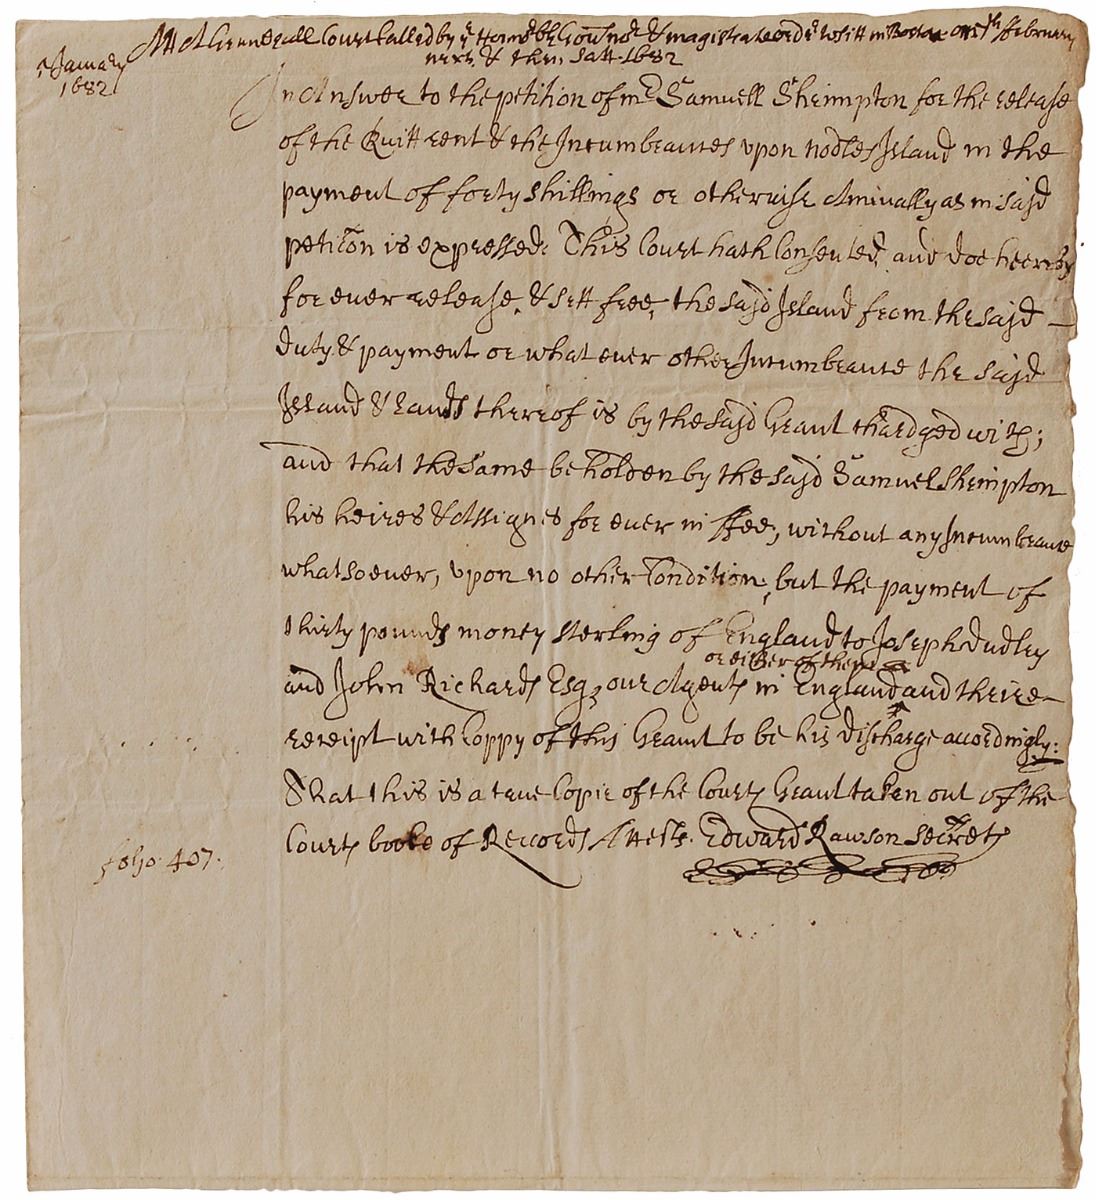 At A Gennerall Court Called by ye Honoble Gounor & magistrates & ordr writt in Boston on 7th ffebruary
next, & then Satt. 1682
5 January
1682
In Answer to the petition of mr Samuell Shrimpton for the release
of the Quitt rent & the Incumbrances upon nodles Island in the
payment of forty shillings or otherwise Annually as in sajd
petition is expressed: This Court hath Consented, and doe heereby
for ever release, & sett free, the sajd Island from the sajd
duty & payment or what ever other Incumbrance the sajd
Island & lands thereof is by the sajd Grant chardged with;
and that the same be holden by the sajd Samuel Shrimpton
his heires & Assignes for ever in ffee, without any Incumbrance
whatsoever, upon no other Condition, but the payment of
thirty pounds money sterling of England to Joseph dudley
or either of them
and John Richards Esqs our Agents in England and theire
receipt with Coppy of this Grant to be his discharge accordingly:
That this is a true Copie of the Courts Grant taken out of the
folio. 407.
Courts booke of Records Attests. Edward Rawson Secrety